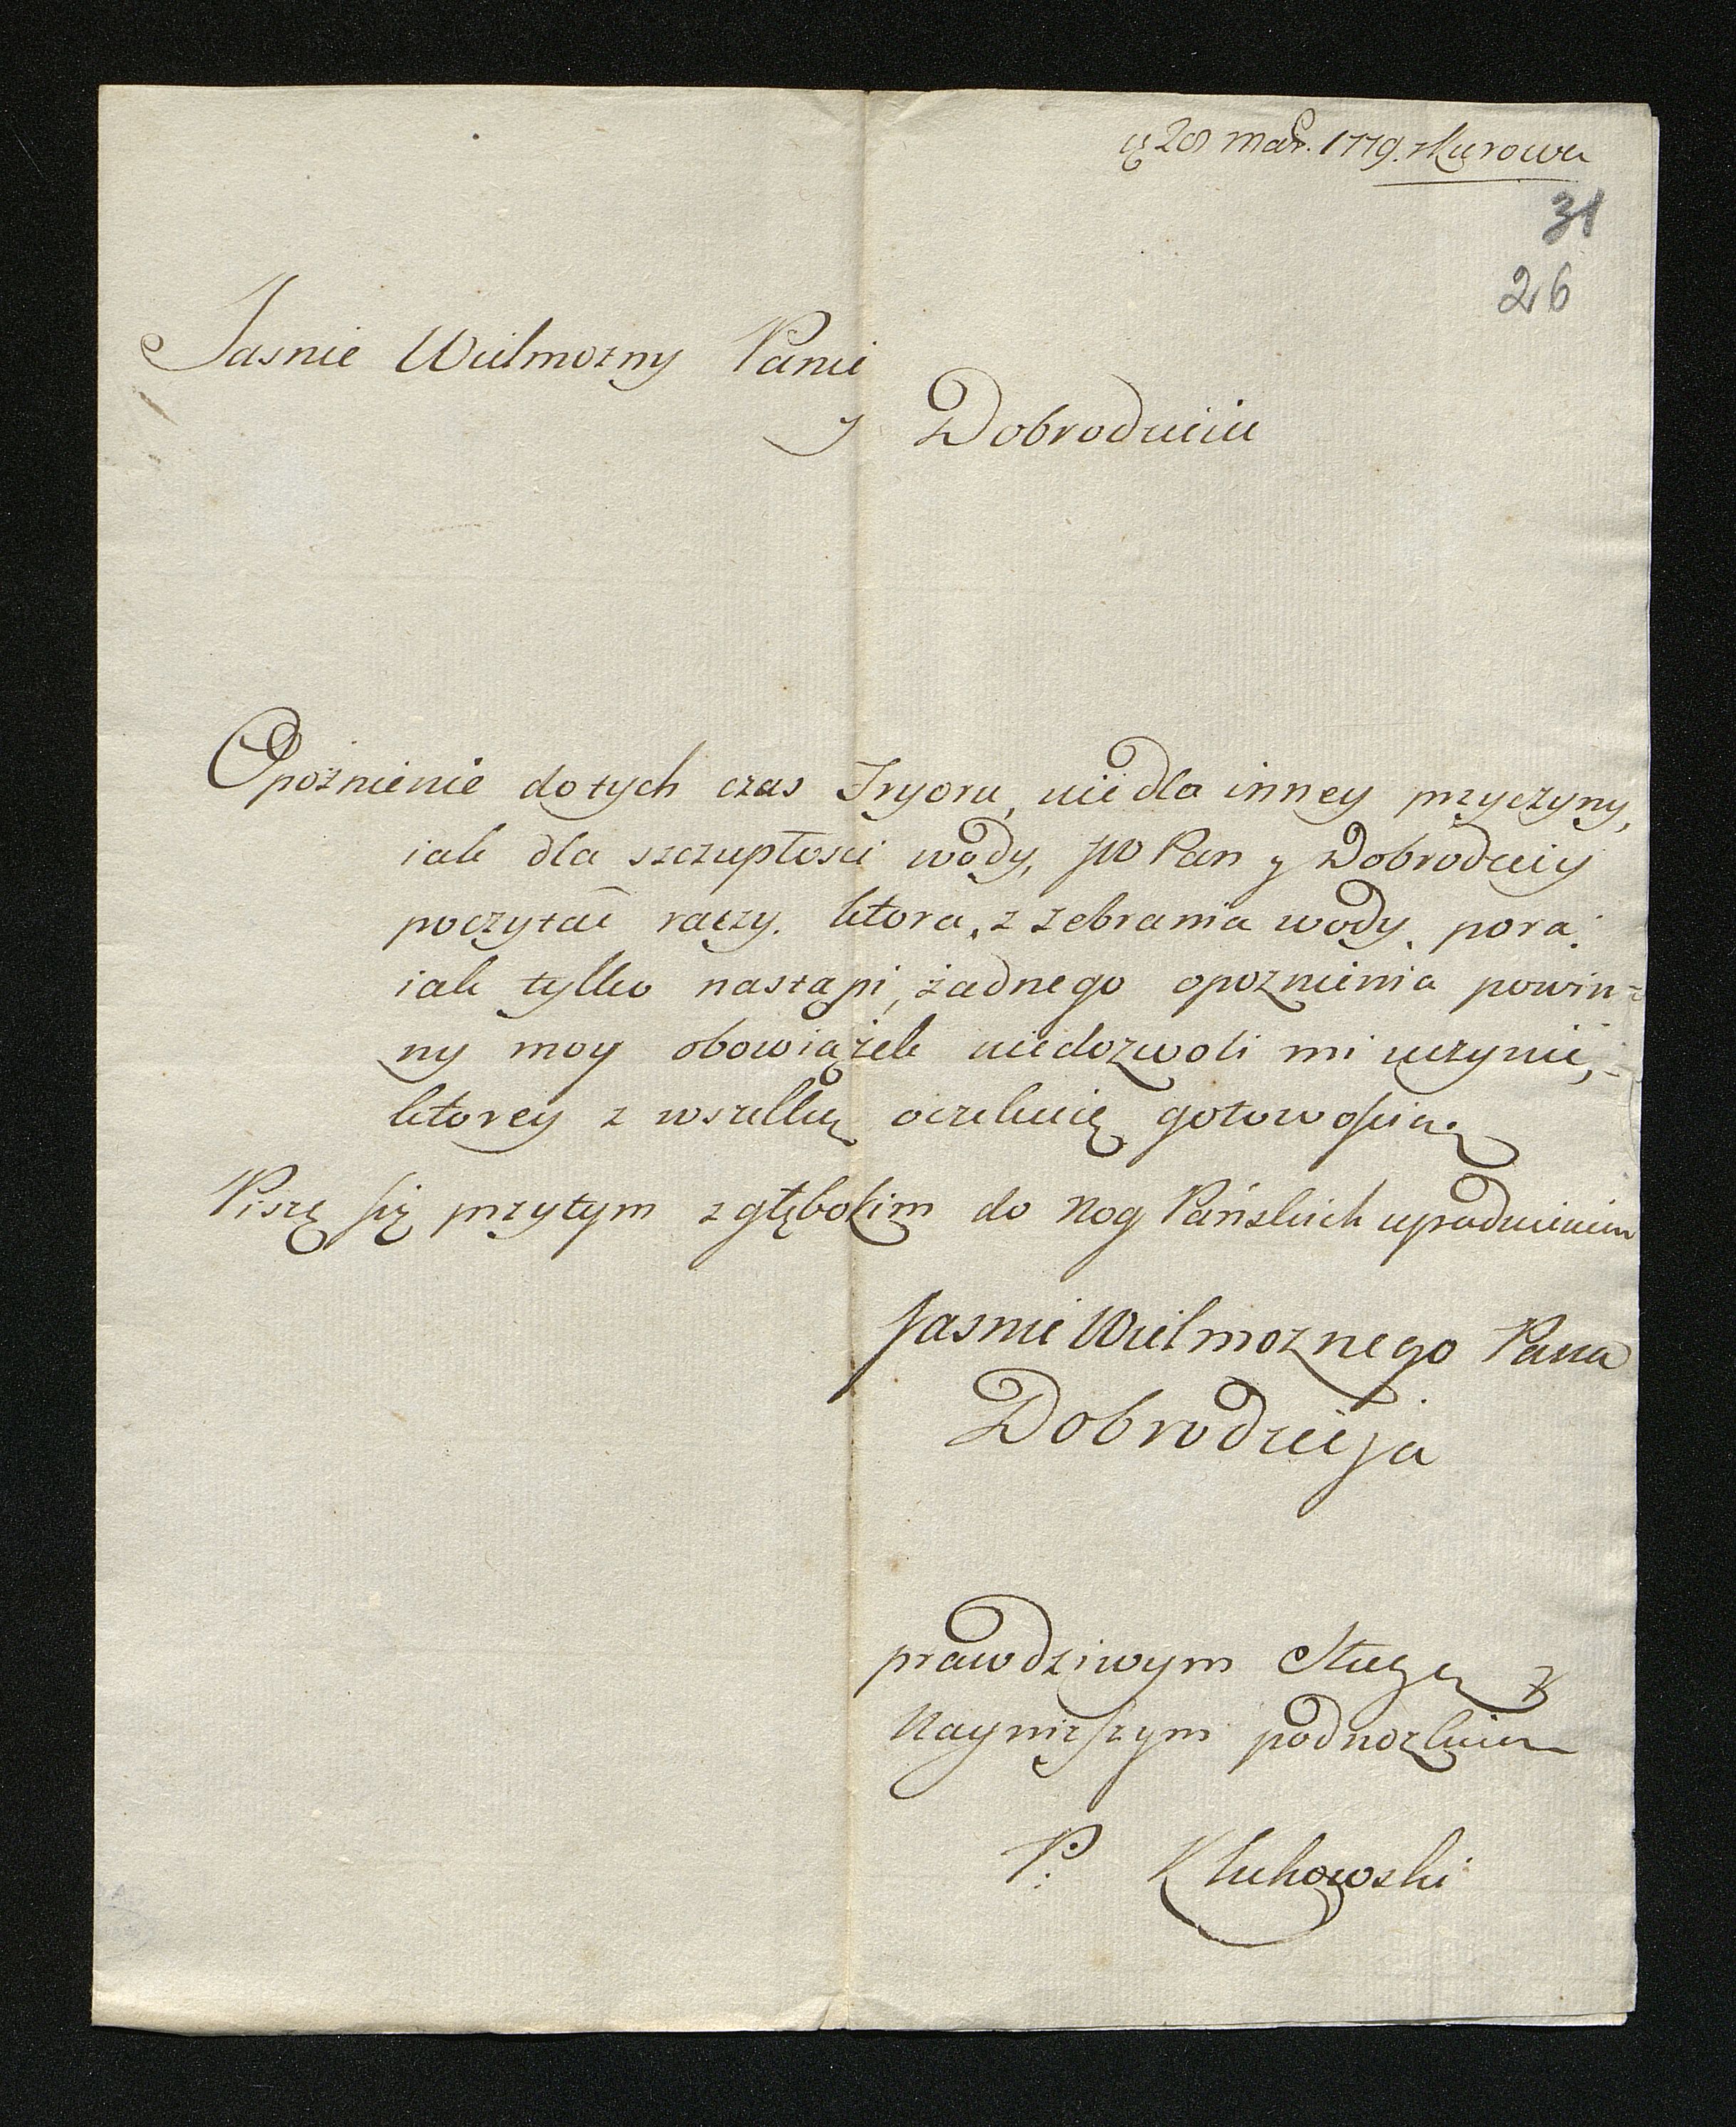 28 Mar. 1779. z Kurowa
31
26
Jasnie Wielmozny Panie
y Dobrodzieiu
Opoźnienie do tych czas Tryoru, nie dla inney przyczyny,
iak dla szczupłosci wody, JW Pan y Dobrodziey
poczytać raczy. ktora, z zebrania wody, pora.
iak tylko nastąpi, żadnego opoznienia powin=
ny moy obowiązek niedozwoli mi uczynić,
ktorey z wszelką oczekuię gotowoscią.
Piszę się przytym z głębokim do nog Pańskich upadnieniem
Jasnie Wielmoznego Pana
Dobrodzieja
prawdziwym Sługą y
Nayniższym podnozkiem
P: Klukowski